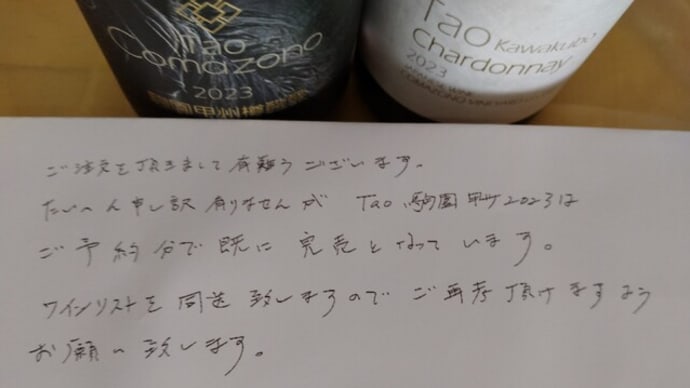 Tao
Comazono
2023
駒園甲州樽醗酵
Tao Kawakubo
Chardonnay
2023
JAPANESE WINE
COMAZONO VINEYARD
ご注文を頂きまして有難うございます。
たいへん申し訳有りませんが Tao 駒園甲州2023は
ご予約分で既に完売となっています。
ワインリストを同送致しますのでご再考頂けますよう
お願い致します。